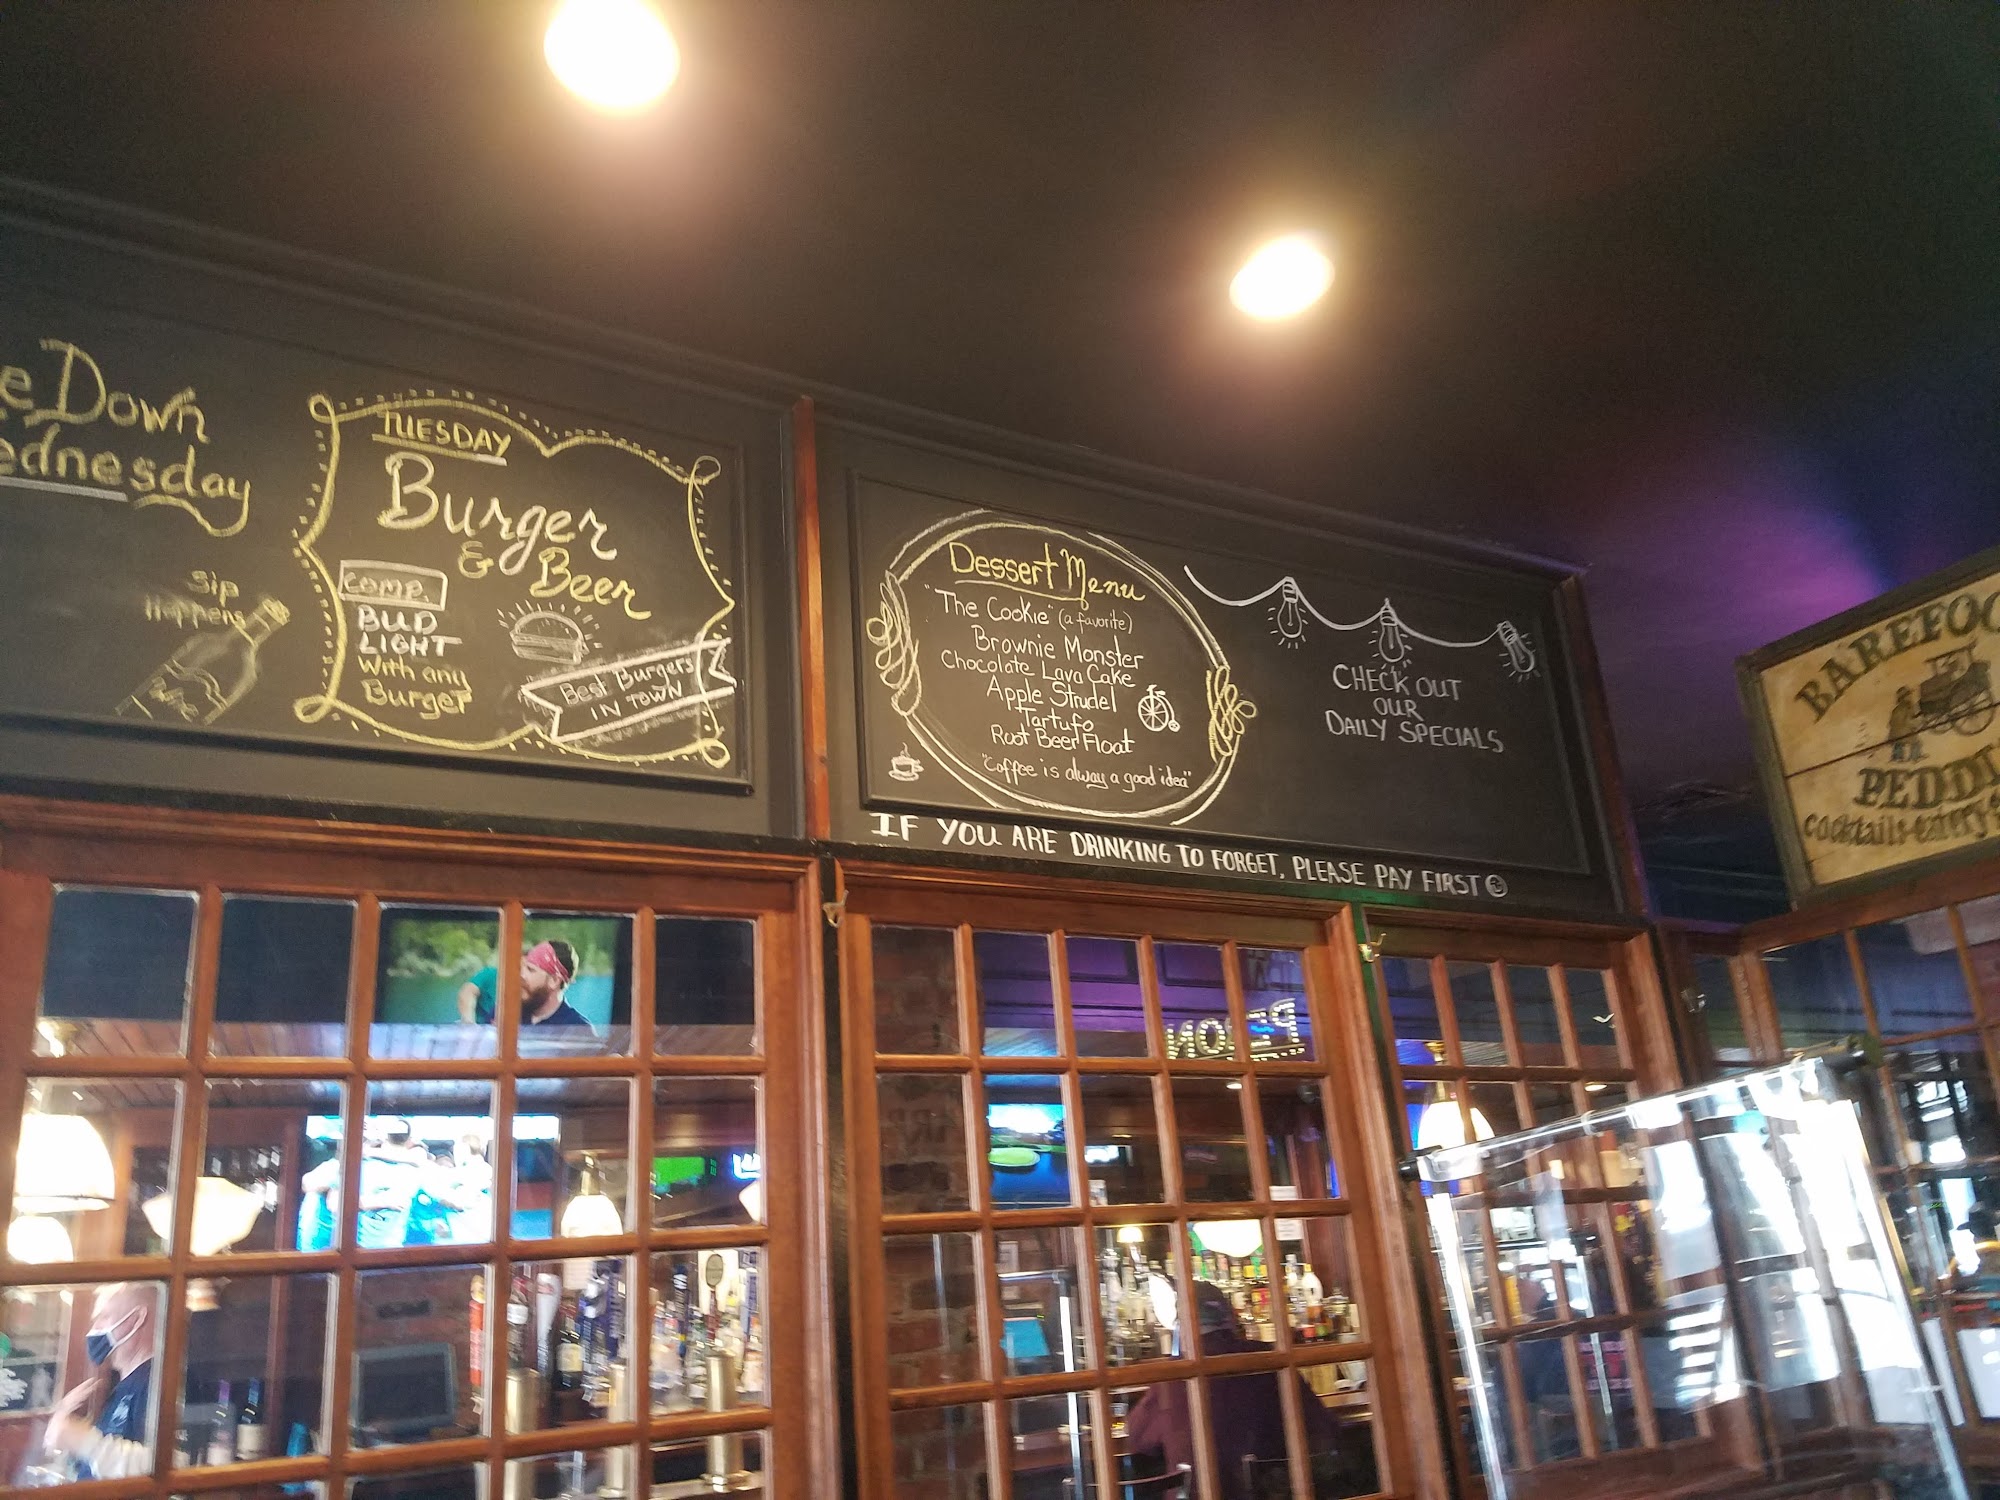 e Down
ednesday
Sip
Happens
TUESDAY
Burger
& Beer
COMP.
BUD
LIGHT
With any
Burger
Best Burgers
IN TOWN
Dessert Menu
"The Cookie" (a favorite)
Brownie Monster
Chocolate Lava Cake
Apple Strudel
Tartufo
Root Beer Float
"Coffee is alway a good idea"
CHECK OUT
OUR
DAILY SPECIALS
IF YOU ARE DRINKING TO FORGET, PLEASE PAY FIRST
BAREFOO
PEDDL
Cocktails-eatery